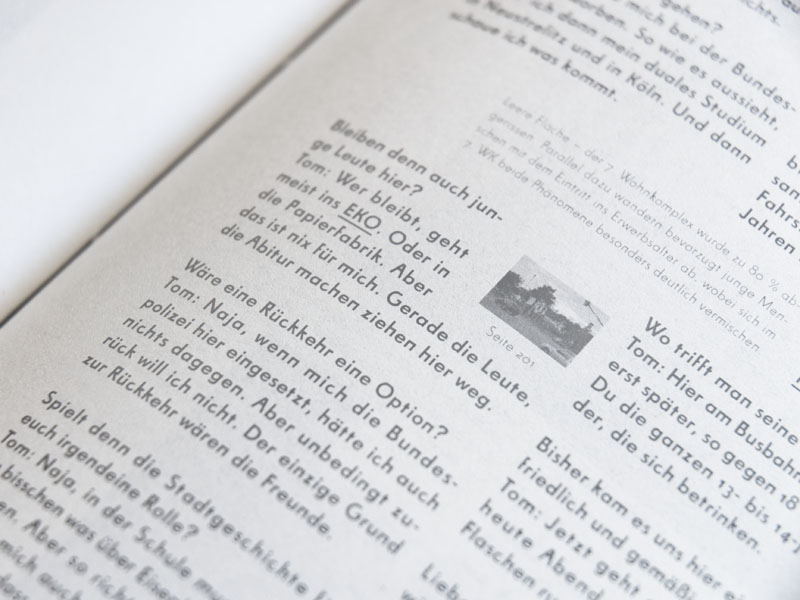 mich bei der Bundes-
So wie es aussieht,
ich dann mein duales Studium
Neustrelitz und in Köln. Und dann
schaue ich was kommt.
Leere Fläche – der 7. Wohnkomplex wurde zu 80 % ab-
gerissen. Parallel dazu wandern bevorzugt junge Men-
schen mit dem Eintritt ins Erwerbsalter ab, wobei sich im
7. WK beide Phänomene besonders deutlich vermischen.
Bleiben denn auch jun-
ge Leute hier?
Tom: Wer bleibt, geht
meist ins EKO. Oder in
die Papierfabrik. Aber
das ist nix für mich. Gerade die Leute,
die Abitur machen ziehen hier weg.
Seite 201
Wäre eine Rückkehr eine Option?
Tom: Naja, wenn mich die Bundes-
polizei hier eingesetzt, hätte ich auch
nichts dagegen. Aber unbedingt zu-
rück will ich nicht. Der einzige Grund
zur Rückkehr wären die Freunde.
Spielt denn die Stadtgeschichte
euch irgendeine Rolle?
Tom: Naja, in der Schule
bisschen was über
Aber so
mich auch
Fahrs
Jahren
Wo trifft man seine
Tom: Hier am Busbahn
erst später, so gegen 18
Du die ganzen 13- bis 14-j
der, die sich betrinken.
Bisher kam es uns hier
friedlich und gemäßi
Tom: Jetzt geht
heute Abend
Flaschen
Liebe